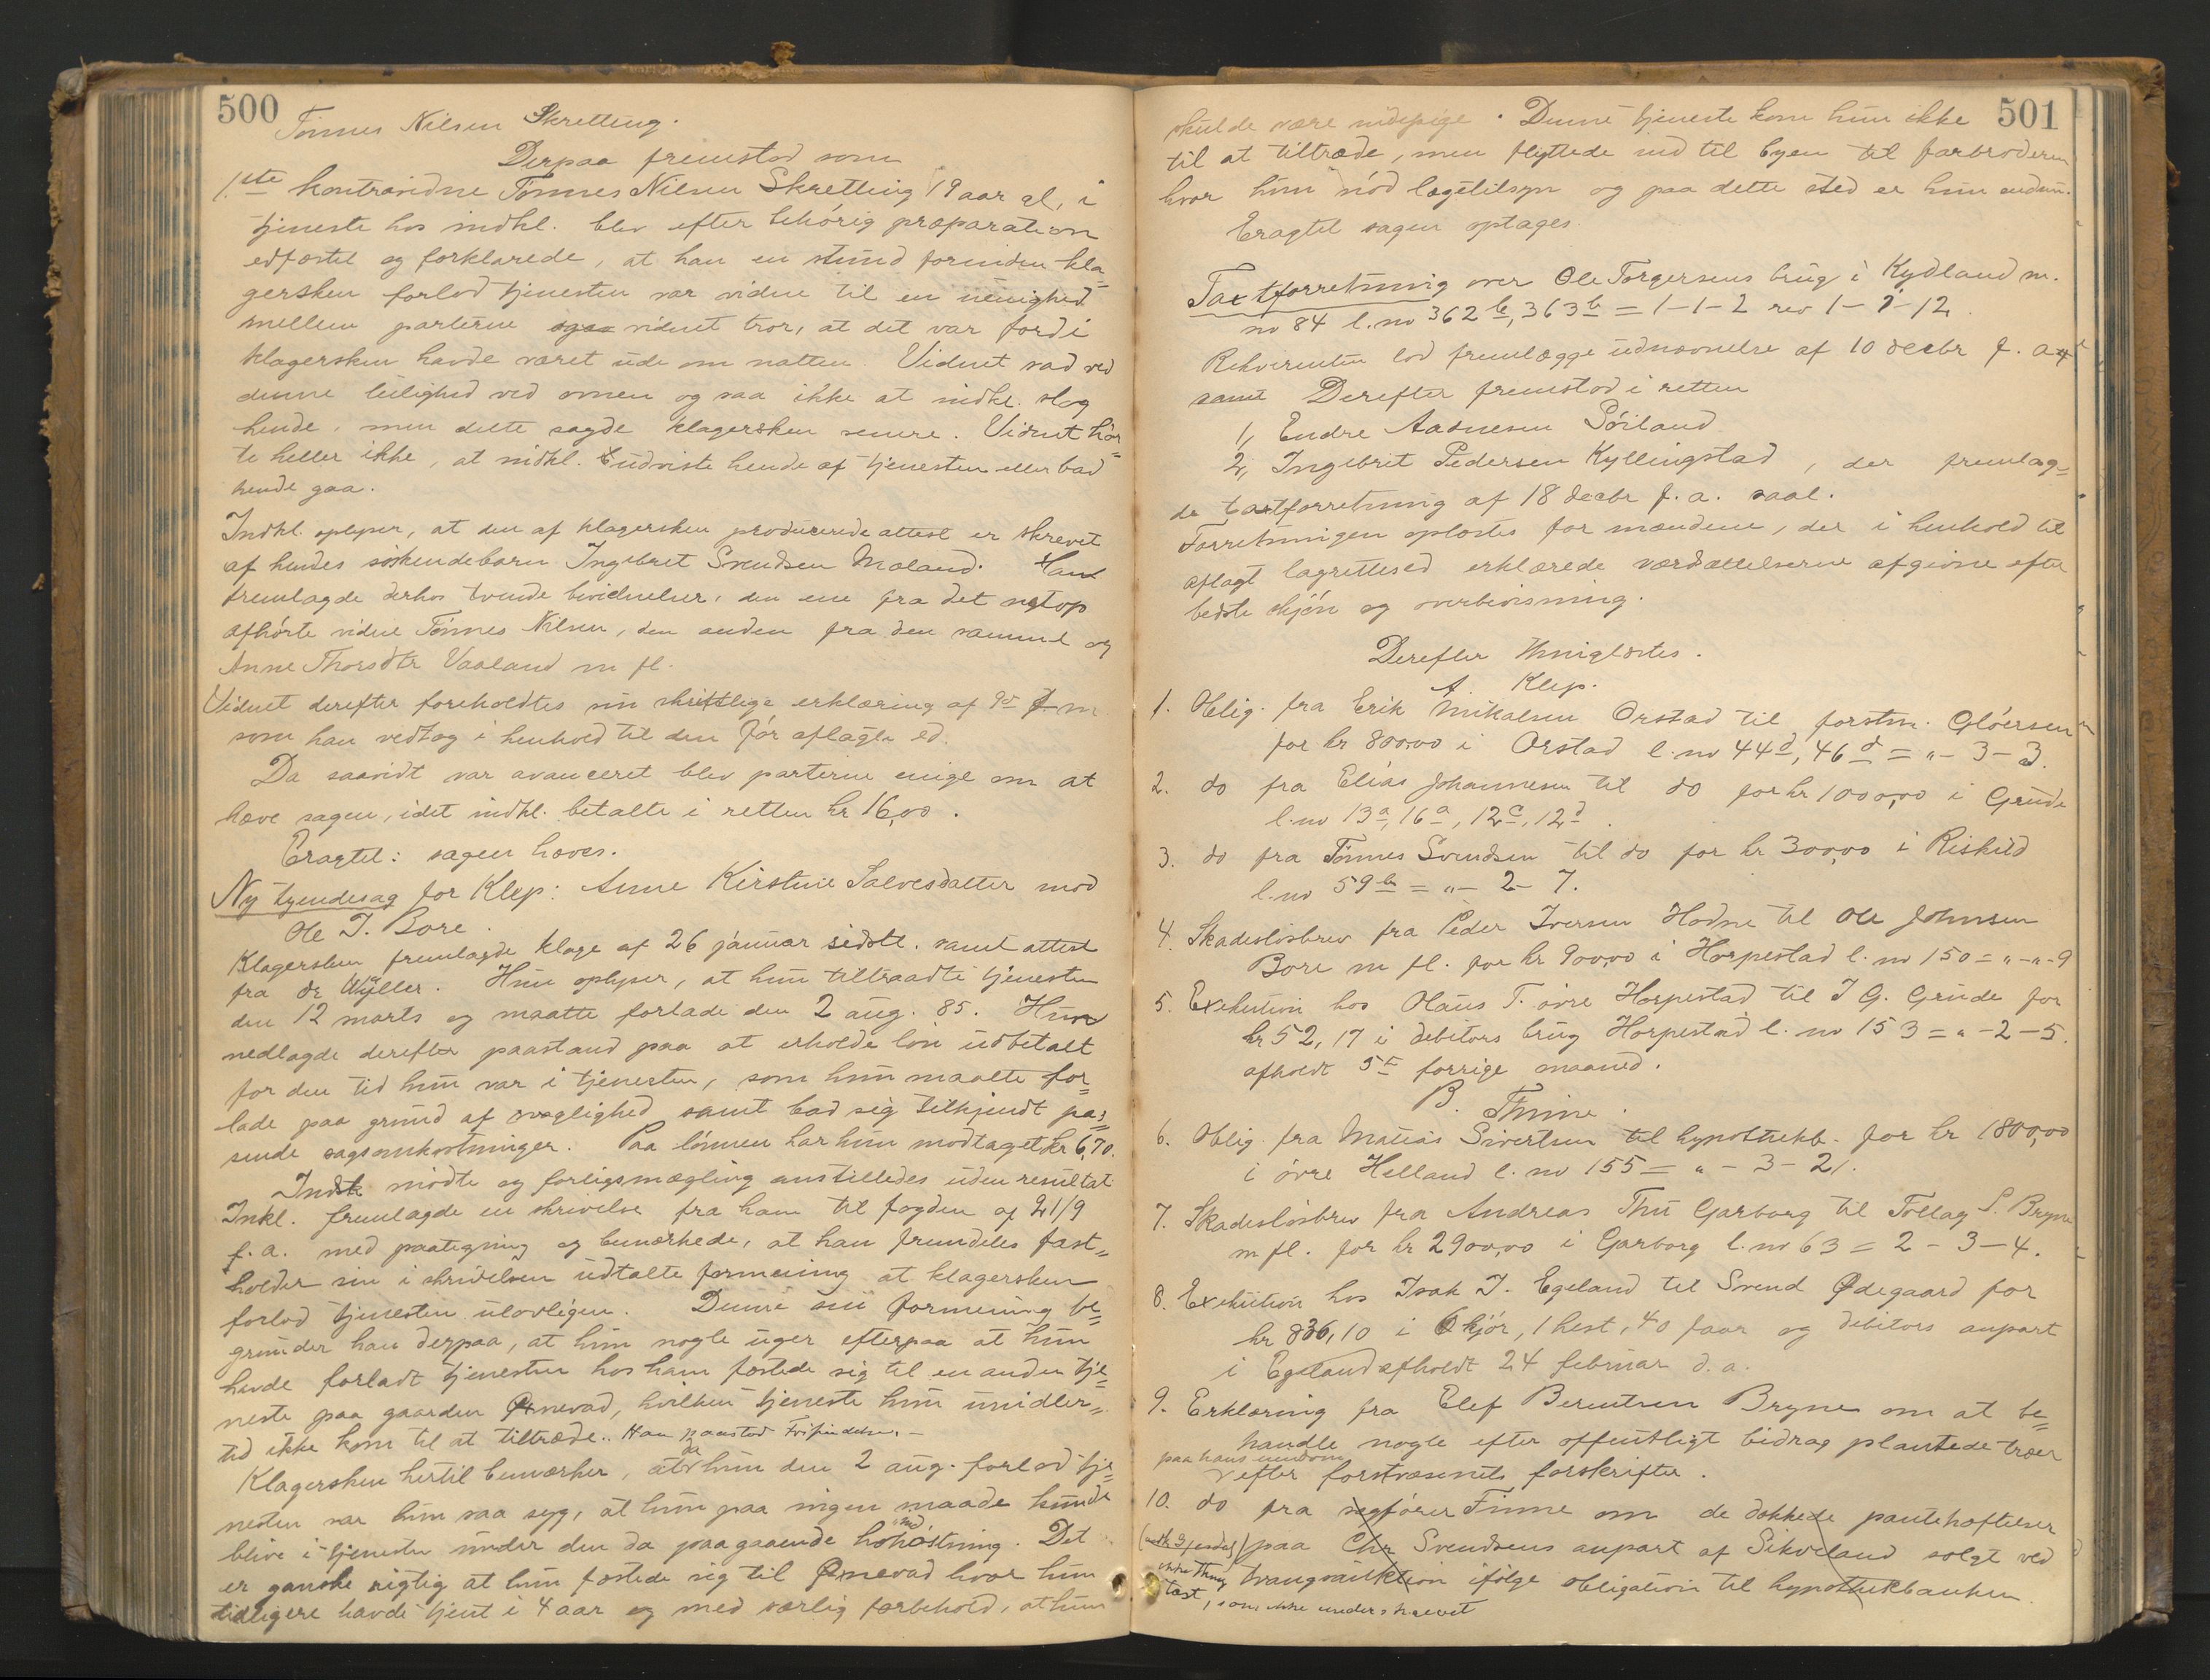 500
Tönnes Nilsen Skretting.
Derpaa fremstod som
1.ste kontravidne Tönnes Nilsen Skretting 19 aar gl, i
tjeneste hos indkl. blev efter behörig præparation
edfæstet og forklarede, at han en stund forinden kla=
gersken forlod tjenesten var vidne til en uenighed
mellem parterne vidnet tror, at det var fordi
klagersken havde været ude om natten. Vidnet sad ved
denne leilighed ved ovnen og saa ikke at indkl. slog
hende, men dette sagde klagersken senere. Vidnet hör=
te heller ikke, at indkl. udviste hende af tjenesten eller bad
hende gaa.
Indkl. oplyser, at den af klagersken producerede attest er skrevet
af hendes söskendebarn Ingebret Svendsen Maland. Han
fremlagde derhos tvende bevidnelser, den ene fra det netop
afhörte vidne Tönnes Nilsen, den anden fra den samme og
Anne Thorsdtr Vaaland m fl.
Vidnet derefter foreholdtes sin skriftlige erklæring af 9de f. m.
som han vedtog i henhold til den för aflagte ed.
Da saavidt var avanceret blev parterne enige om at
hæve sagen, idet indkl. betalte i retten kr 16,00.
Eragtet: sagen hæves.
Ny tyendesag for Klep: Anne Kirstine Salvesdatter mod
Ole T. Bore.
Klagersken fremlagde klage af 26 januar sidstl. samt attest
fra dr Wyller. Hun oplyser, at hun tiltraadte tjenesten
den 12 marts og maatte forlade den 2 aug. 85. Hun
nedlagde derefter paastand paa at erholde lön udbetalt
for den tid hun var i tjenesten, som hun maatte for=
lade paa grund af svaglighed samt bad sig tilkjendt pas=
sende sagsomkostninger. Paa lönnen har hun modtaget kr 6,70.
Indst mödte og forligsmægling anstilledes uden resultat
Inkl. fremlagde en skrivelse fra ham til fogden af 21/9
f. a. med paategning og bemærkede, at han fremdeles fast=
holder sin i skrivelsen udtalte formening at klagersken
forlod tjenesten ulovligen. Denne sin formening be=
grunder han derpaa, at hun nogle uger efterpaa at hun
havde forladt tjenesten hos ham fæstede sig til en anden tje=
neste paa gaarden Ørnevad, hvilken tjeneste hun imidler=
tid ikke kom til at tiltræde.. Han paastod Frifindelse. –
Klagersken hertil bemærker, at da hun den 2 aug. forlod tje=
nesten var hun saa syg, at hun paa ingen maade kunde
blive i tjenesten under den da paagaaende höhöstning. Det
er ganske rigtig at hun fæstede sig til Ørnevad hvor hun
tidligere havde tjent i 4 aar og med særlig forbehold, at hun
501
skulde være indepige. Denne tjeneste kom hun ikke
til at tiltræde, men flyttede ind til byen til farbroderen
hvor hun nöd lægetilsyn og paa dette sted er hun endnu.
Eragtet sagen optages.
Taxtforretning over Ole Torgersens brug i Kydland m.
no 84 l. no 362 b, 363 b = 1-1-2 rev 1-2-12.
Rekvirenten lod fremlægge udnævnelse af 10 decbr f. a
samt Derefter fremstod i retten
1, Endre Aadnesen Söiland
2, Ingebrit Pedersen Kyllingstad, der fremlag=
de taxtforretning af 18 decbr f. a. saal.
Forretningen oplæstes for mændene, der i henhold til
aflagt lagrettesed erklærede værdsættelserne afgivne efter
bedste skjön og overbevisning.
Derefter thinglæstes.
A. Klep.
1. Oblig. fra Erik Mikalsen Orstad til forstm. Glöersen
for kr 800,00 i Orstad l. no 44 d, 46 d = „-3-3.
2. do fra Elias Johannesen til do for kr 1000,00 i Grude
l. no 13 a, 16 a, 12 c, 12 d.
3. do fra Tönnes Svendsen til do for kr 300,00 i Riskild
l. no 59 b = „-2-7.
4. Skadeslösbrev fra Peder Iversen Hodne til Ole Johnsen
Bore m fl. for kr 900,00 i Horpestad l. no 150 = „-„-9
5. Exekution hos Olaus T. övre Horpestad til J G. Grude for
kr 52,17 i debitors brug Horpestad l. no 153 = „-2-5.
afholdt 5te forrige maaned.
B. Thime.
6. Oblig. fra Matias Sivertsen til hypothekb. for kr 1800,00
i övre Helland l. no 155 = „-3-21.
7. Skadeslösbrev fra Andreas Thu Garborg til Tollag S. Bryne
m fl. for kr 2900,00 i Garborg l. no 63 = 2-3-4.
8. Exekution hos Isak J. Egeland til Svend Ødegaard for
kr 836,10 i 6 kjör, 1 hest, 40 faar og debitors anpart
i Egeland afholdt 24 februar d. a.
9. Erklæring fra Elef Berentsen Bryne om at be=
handle nogle efter offentligt bidrag plantede træer
paa hans eiendom
efter forstvæsenets forskrifter.
10. do fra sagförer Finne om de dækkede pantehæftelser
paa Chr Svendsens anpart af Sikveland solgt ved
ikke thing tvangsauktion ifölge obligation til hypothekbanken.
læst, som ikke underskrevet